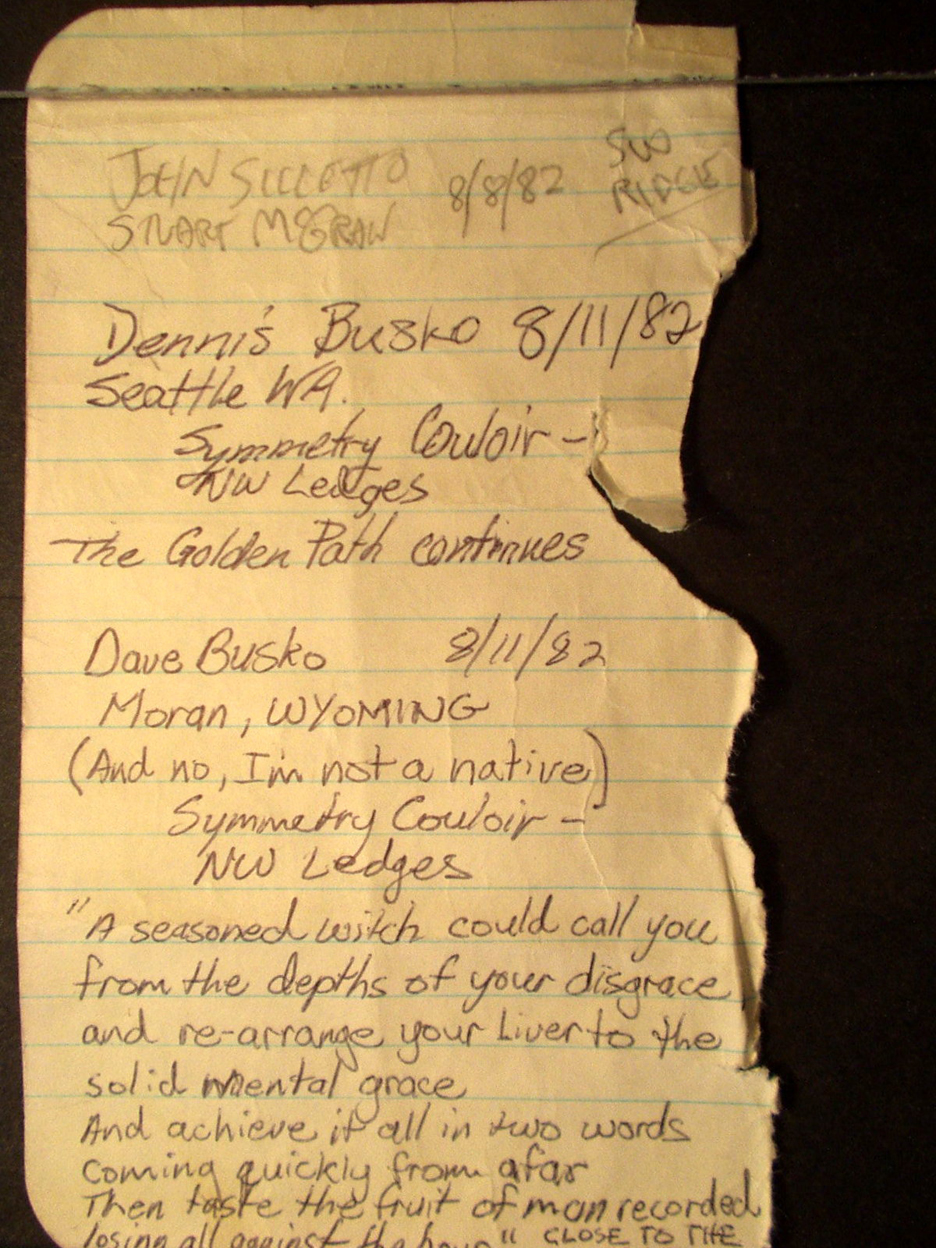 JOHN 8/8/82 SW
STUART McGRAW RIDGE
Dennis Busko 8/11/82
Seattle WA.
Symmetry Couloir -
NW Ledges
The Golden Path continues
Dave Busko 8/11/82
Moran, WYOMING
(And no, I'm not a native)
Symmetry Couloir -
NW Ledges
"A seasoned witch could call you
from the depths of your disgrace
and re-arrange your Liver to the
solid mental grace
And achieve it all in two words
coming quickly from afar
Then taste the fruit of man recorded
losing all against the hour" CLOSE TO THE